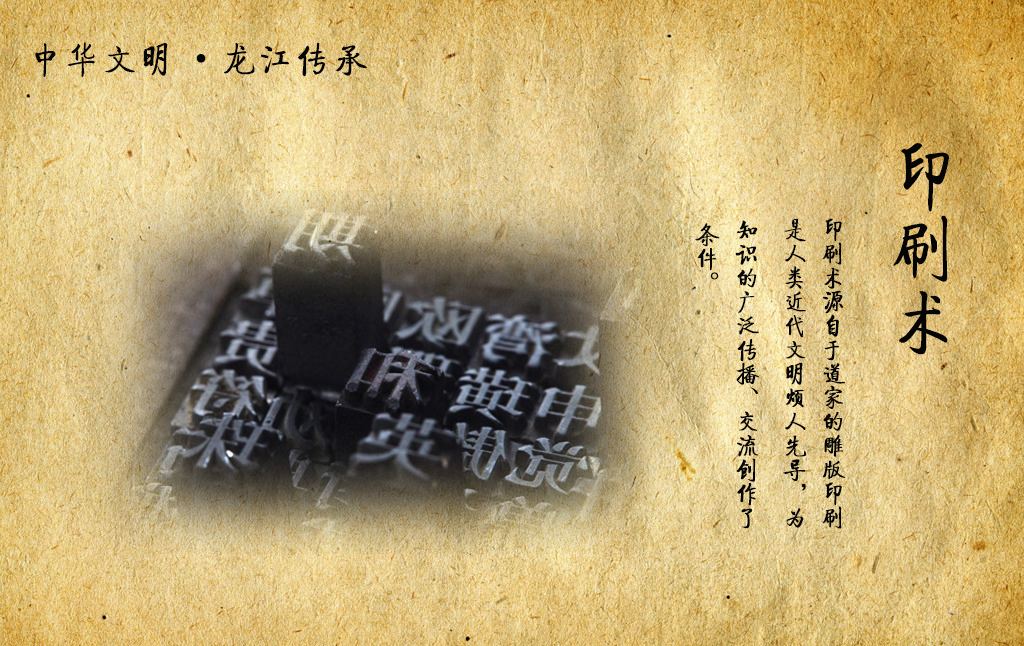 中华文明 · 龙江传承
印刷术
印刷术源自于道家的雕版印刷
是人类近代文明烦人先导，为
知识的广泛传播、交流创作了
条件。